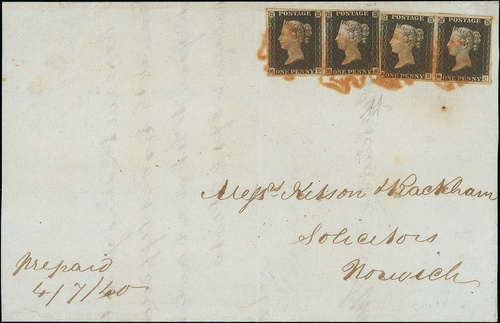 POSTAGE POSTAGE POSTAGE POSTAGE
ONE PENNY ONE PENNY ONE PENNY ONE PENNY
Messrs Kitson & Rackham
Solicitors
Norwich
prepaid
4/7/40